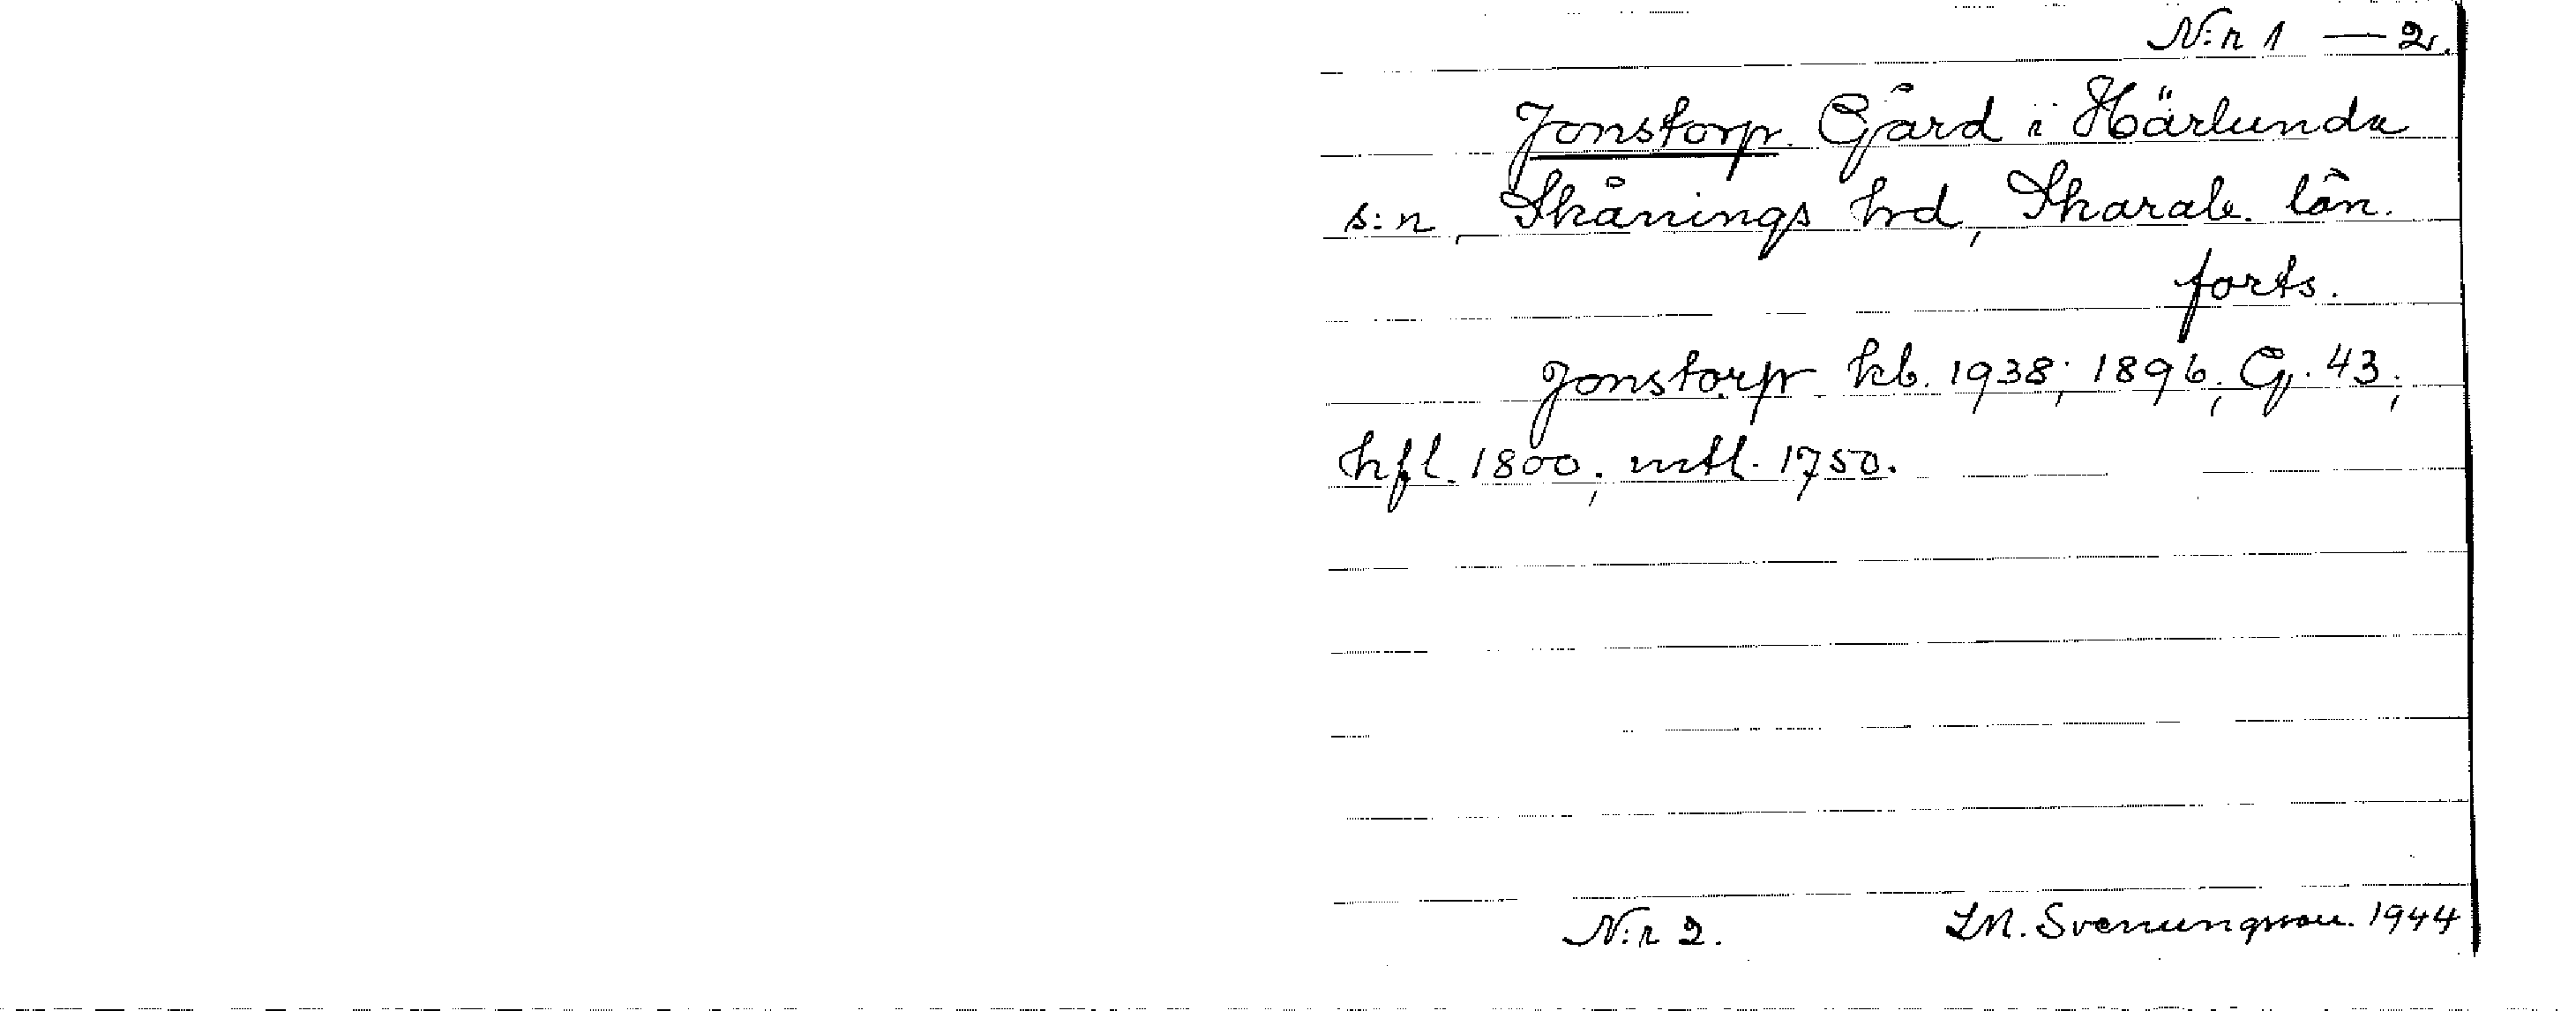 N:r 1 — 2.
Jonstorp. Gård i Härlunda
s:n, Skånings hrd, Skarab. län.
forts.
Jonstorp kb. 1938; 1896; G. 43;
hfl. 1800; mtl. 1750.
N:r 2. LM. Svenungsson. 1944